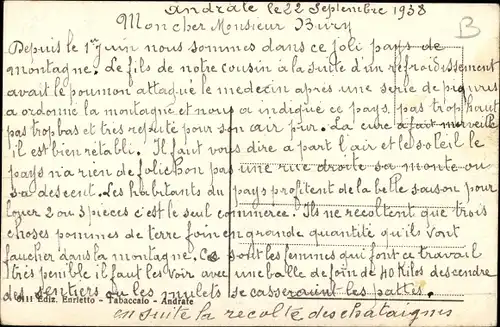 Andrate le 22 Septembre 1938
Mon cher Monsieur Bury
B
Depuis le 1er juin nous sommes dans ce joli pays de
montagne. Le fils de notre cousin à la suite d'un refroidissement
avait le poumon attaqué le medecin après une serie de piqures
a ordonné la montagne et nous a indiqué ce pays, pas trop haut
pas trop bas et très reputé pour son air pur. La cure a fait merveille
il est bien rétabli. Il faut vous dire à part l'air et le soleil le
pays n'a rien de folichon pas une rue droite sa monte ou
sa descent. Les habitants du pays profitent de la belle saison pour
louer 2 ou 3 pièces c'est le seul commerce. Ils ne recoltent que trois
choses pommes de terre foin en grande quantité qu'ils vont
faucher dans la montagne. Ce sont les femmes qui font ce travail
très penible il faut les voir avec une balle de foin de 40 Kilos descendre
des sentiers ou les mulets se casseraient les pattes.
Ediz. Enrietto - Tabaccaio - Andrate
ensuite la recolte des chataignes